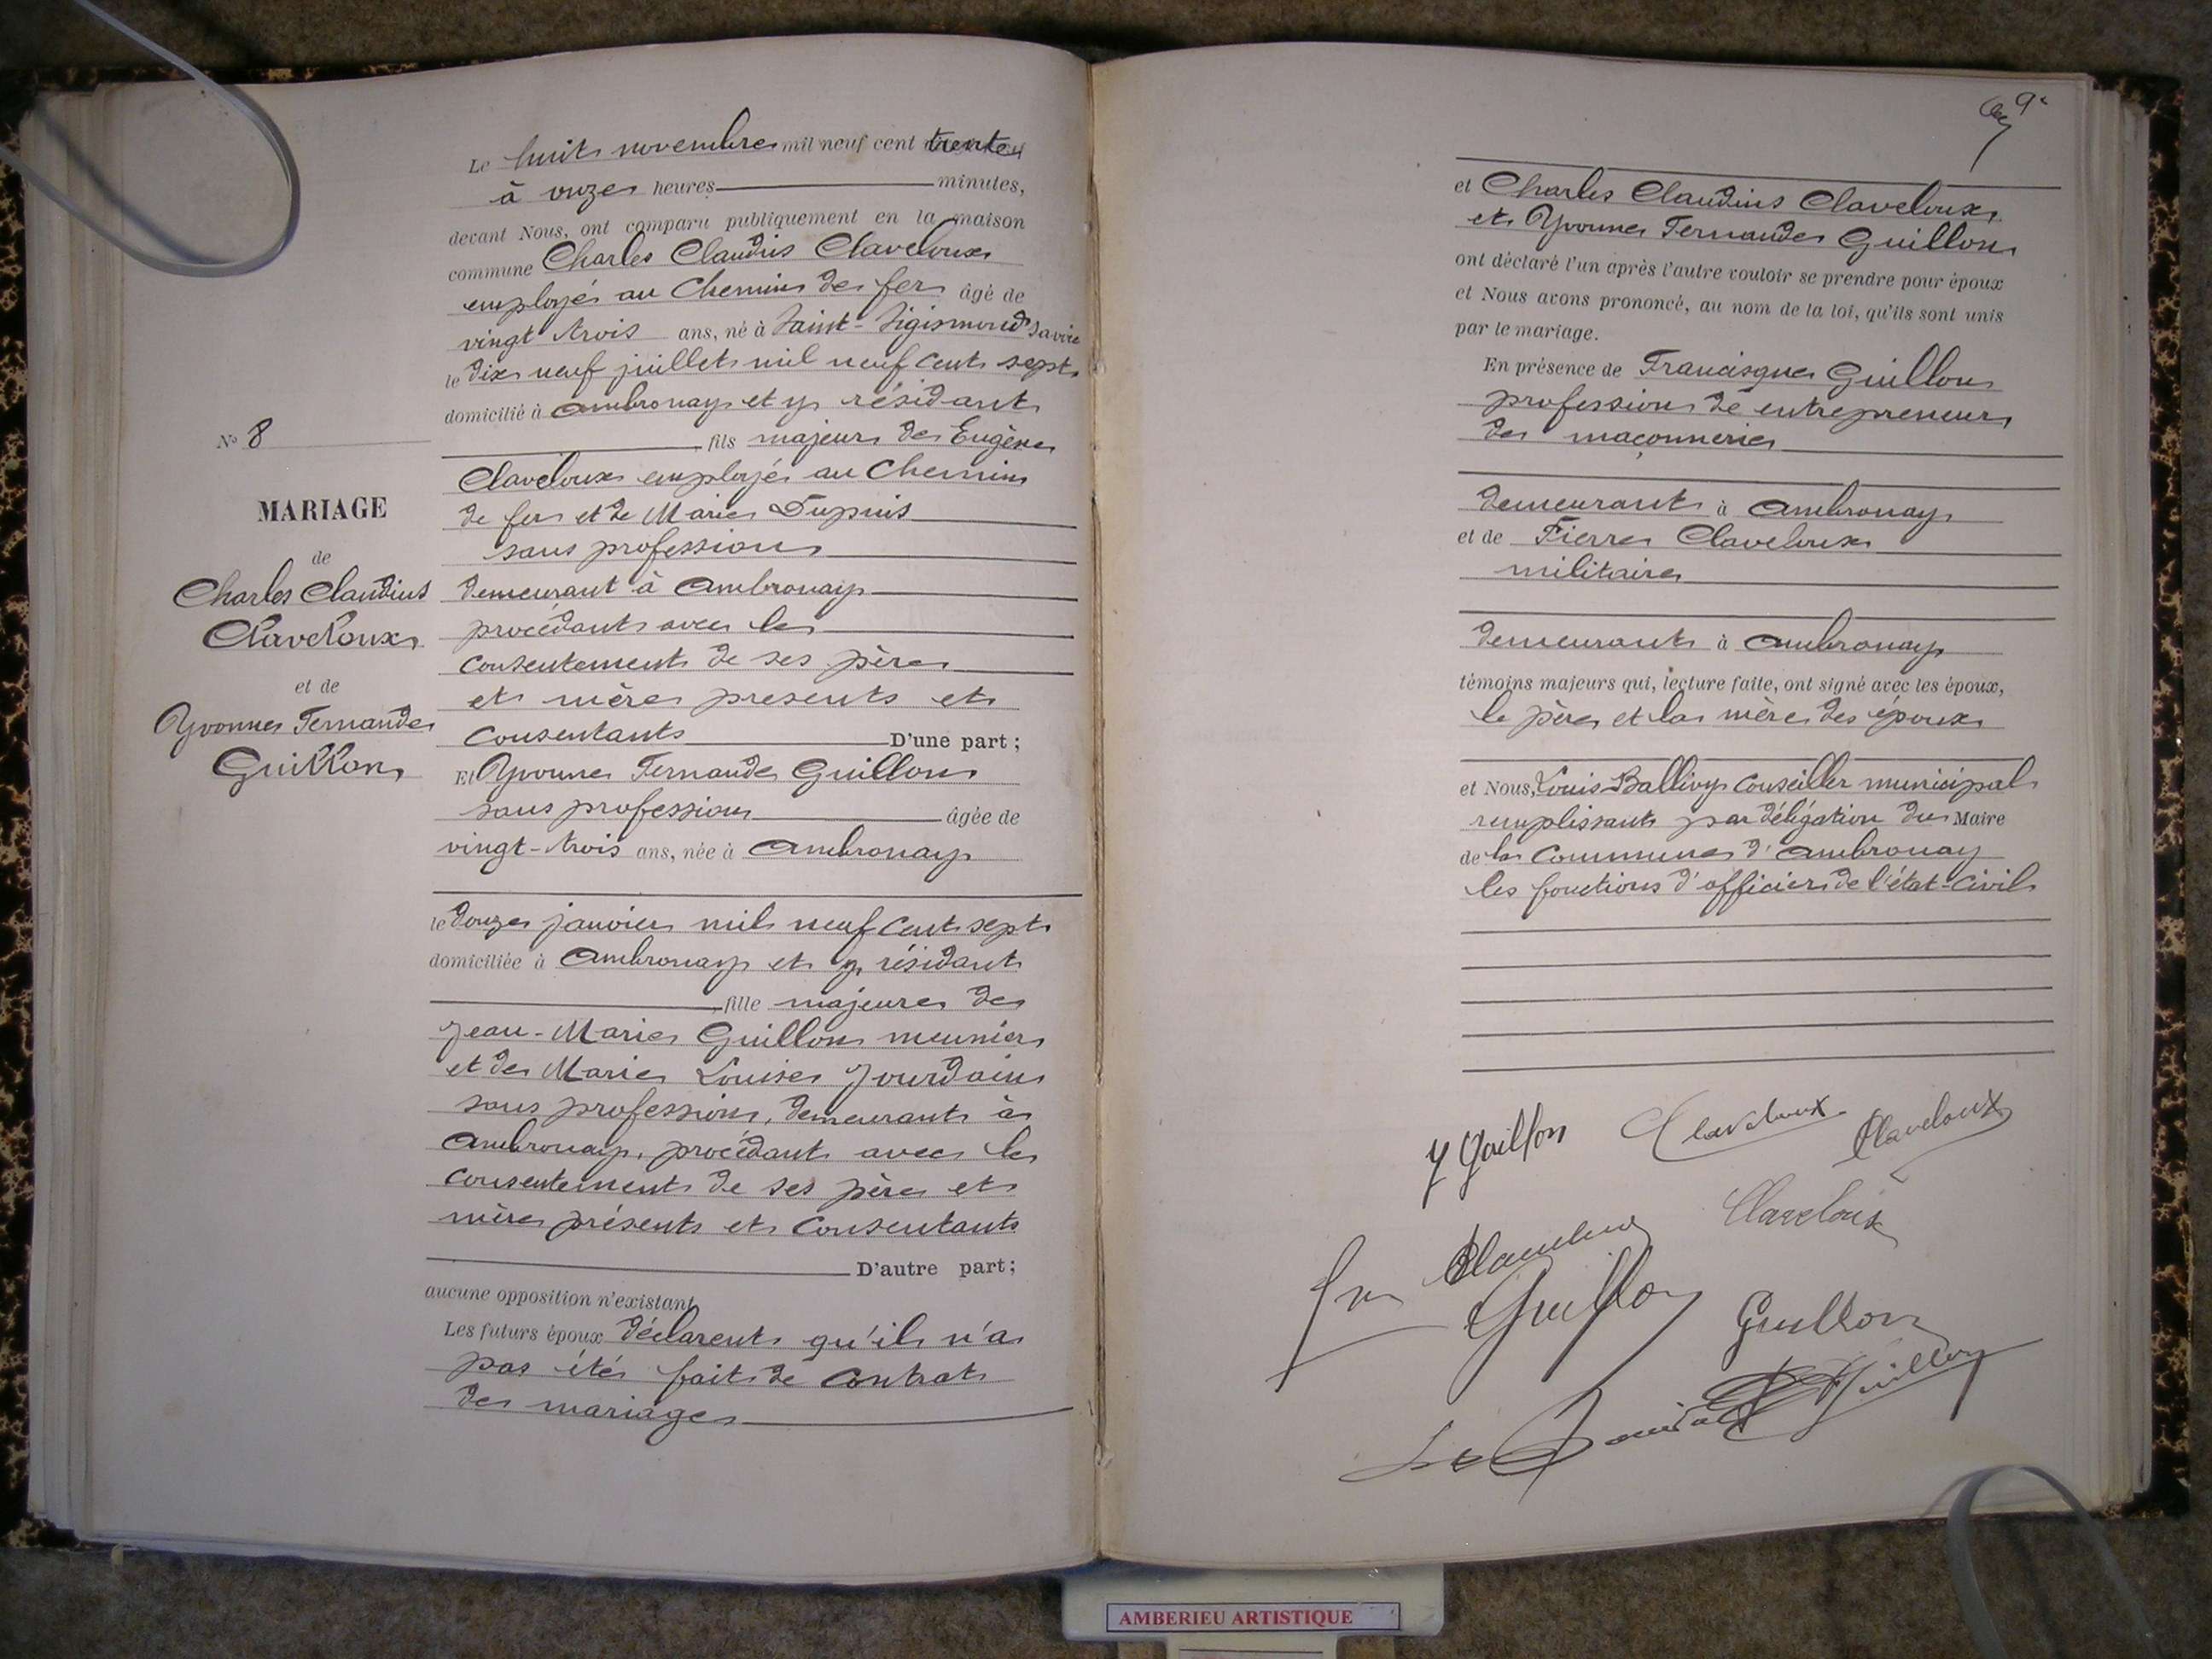 Le huit novembre mil neuf cent trente
à onze heures minutes,
devant Nous, ont comparu publiquement en la maison
commune Charles Claudius Claveloux
employé au Chemin de fer âgé de
vingt trois ans, né à Saint-Sigismond Savoie
le dix neuf juillet mil neuf cent sept
domicilié à Ambronay et y résidant
fils majeur de Eugène
Claveloux employé au Chemin
de fer et de Marie Dupuis
sans profession
demeurant à Ambronay
procédant avec le
consentement de ses père
et mère presents et
consentants D'une part;
Et Yvonne Fernande Guillon
sans profession âgée de
vingt-trois ans, née à Ambronay
le douze janvier mil neuf cent sept
domiciliée à Ambronay et y résidant
fille majeure de
Jean-Marie Guillon meunier
et de Marie Louise Jourdain
sans profession, demeurant à
Ambronay, procédant avec le
consentement de ses père et
mère présents et consentants
D'autre part;
aucune opposition n'existant
Les futurs époux déclarent qu'il n'a
pas été fait de contrat
de mariage
N° 8
MARIAGE
de
Charles Claudius
Claveloux
et de
Yvonne Fernande
Guillon
9
et Charles Claudius Claveloux
et Yvonne Fernande Guillon
ont déclaré l'un après l'autre vouloir se prendre pour époux
et Nous avons prononcé, au nom de la loi, qu'ils sont unis
par le mariage.
En présence de Francisque Guillon
profession de entrepreneur
de maçonnerie
demeurant à Ambronay
et de Pierre Claveloux
militaire
demeurant à Ambronay
témoins majeurs qui, lecture faite, ont signé avec les époux,
le père et la mère des époux
et Nous, Louis Ballivy conseiller municipal
remplissant par délégation du Maire
de la Commune d'Ambronay
les fonctions d'officier de l'état-civil
Y Guillon Claveloux Claveloux
Claveloux
Guillon Guillon
Guillon
AMBERIEU ARTISTIQUE